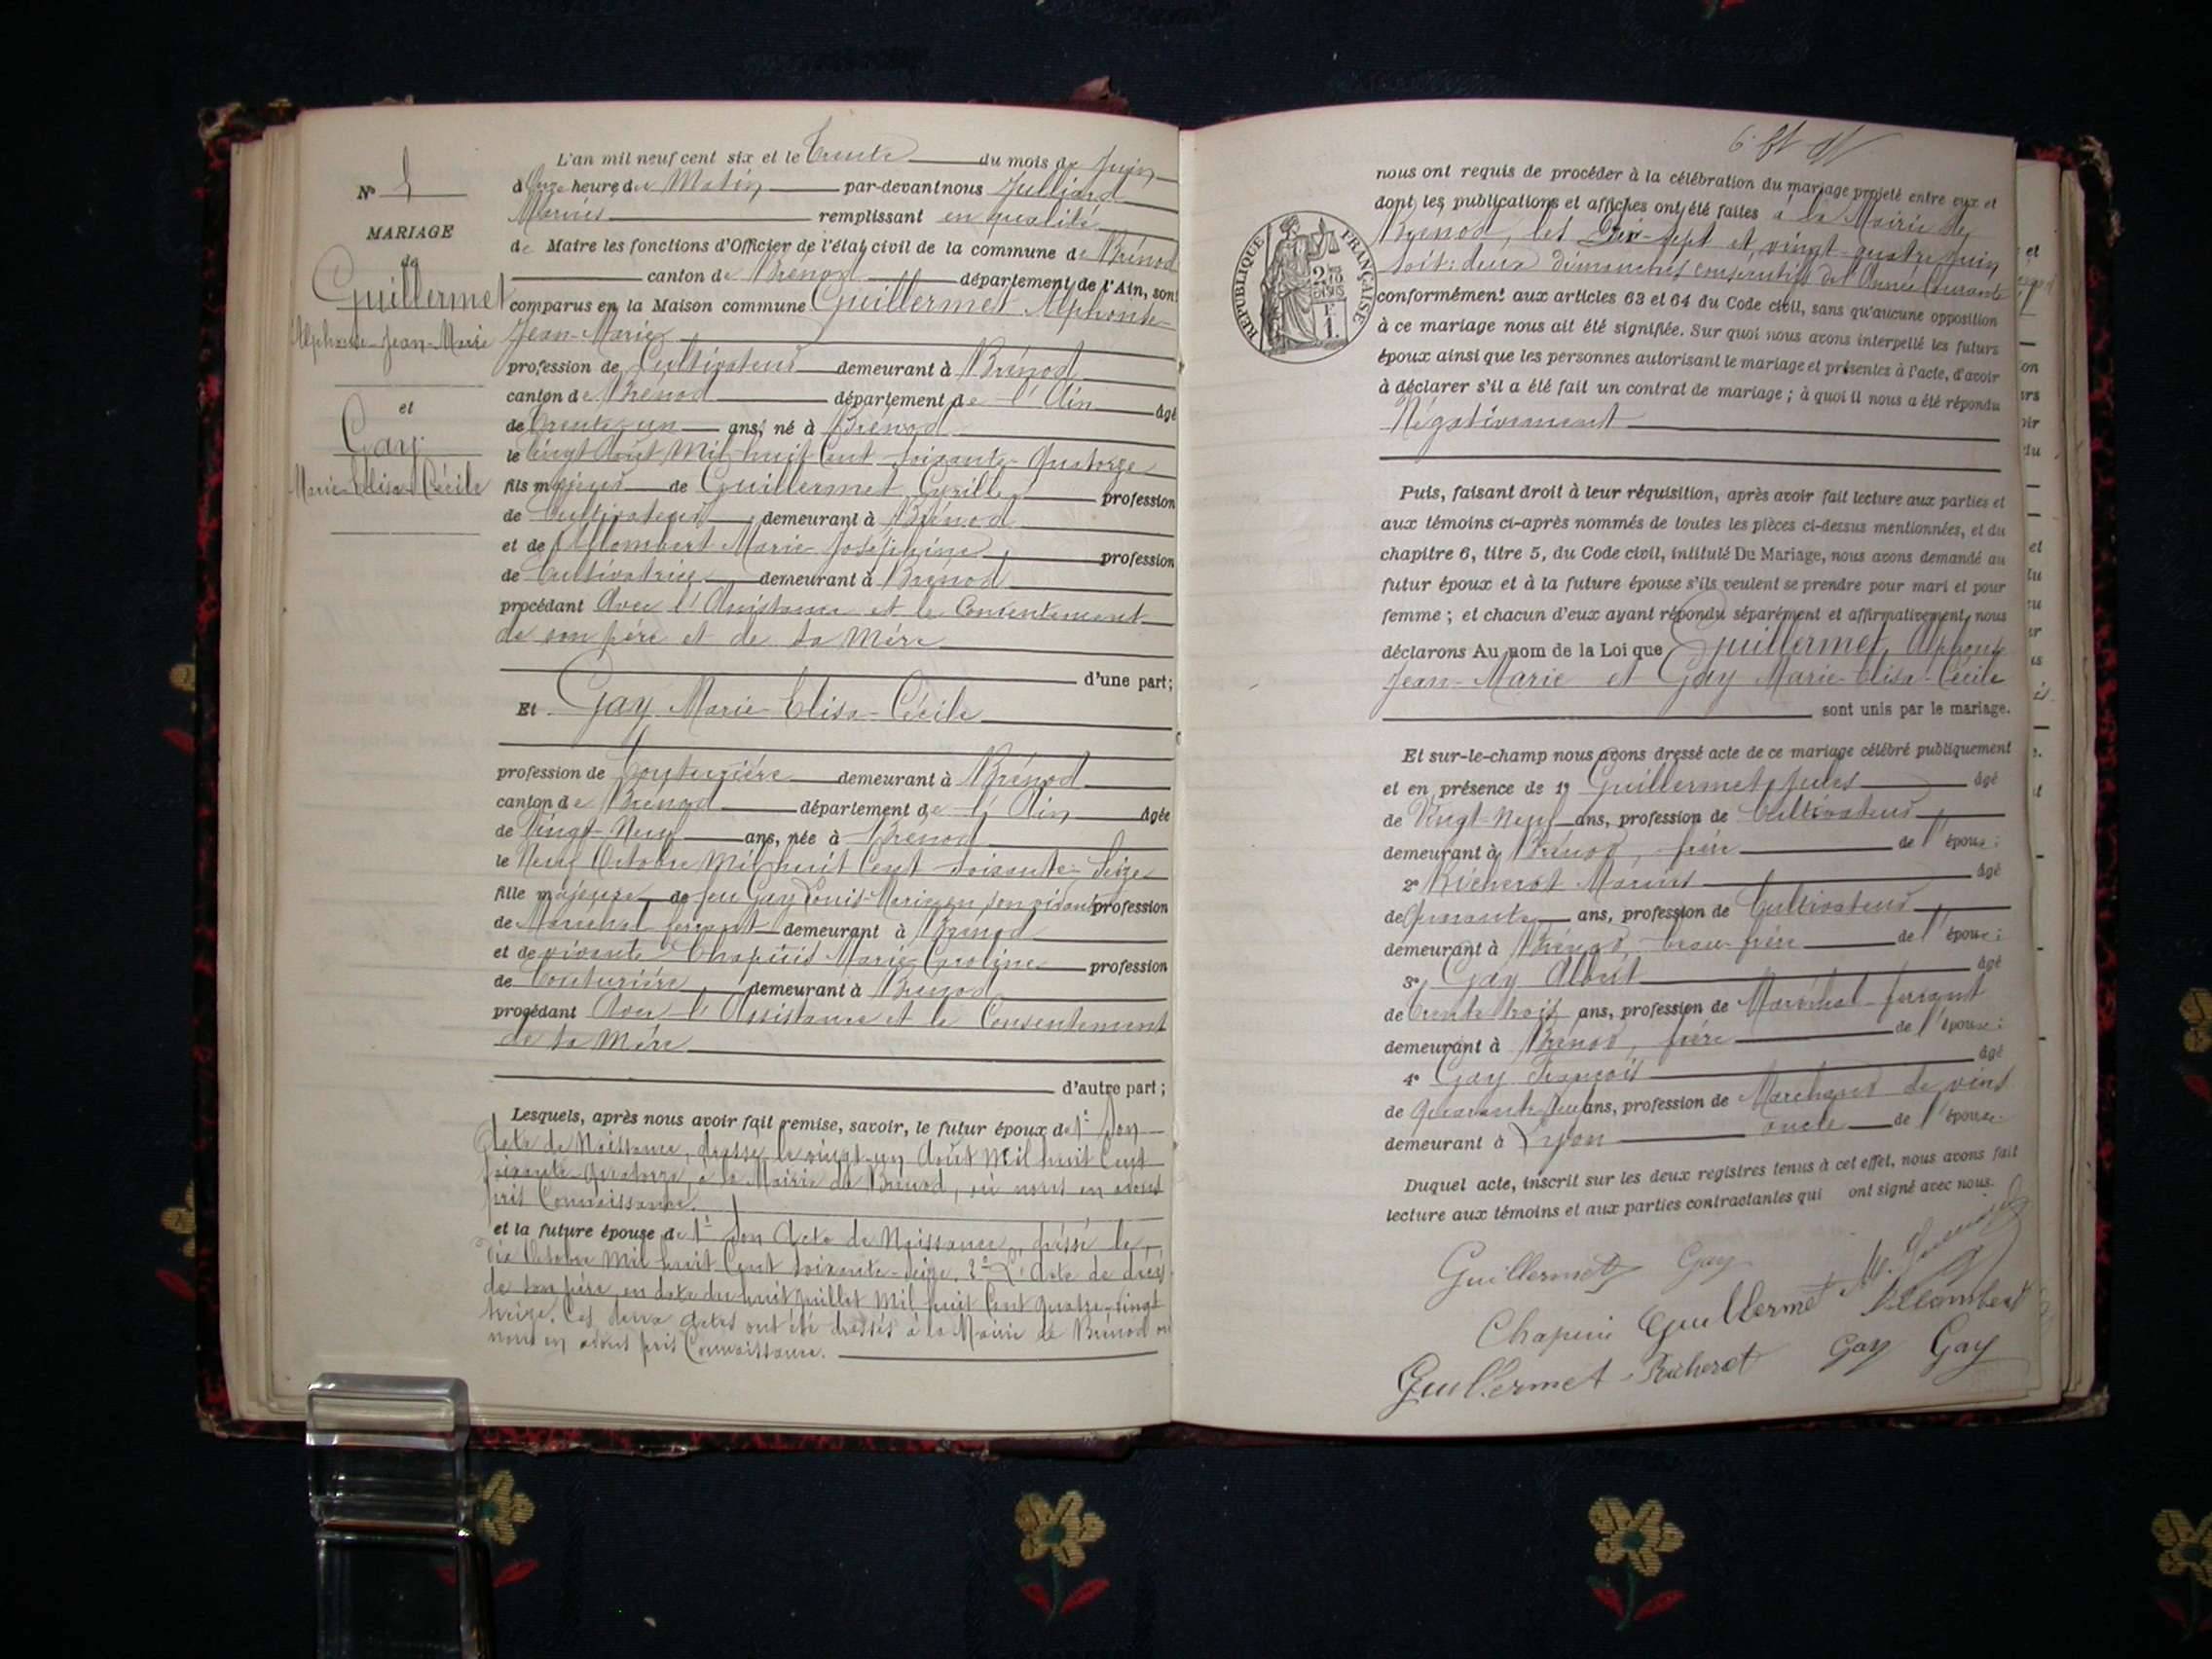 L'an mil neuf cent six et le Trente du mois de Juin
à Onze heure du Matin par-devant nous Julliard
Marius remplissant en qualité
de Maire les fonctions d'Officier de l'état civil de la commune de Brénod
canton de Brénod département de l'Ain, sont
comparus en la Maison commune Guillermet Alphonse
Jean-Marie
profession de Cultivateur demeurant à Brénod
canton de Brénod département de l'Ain âgé
de Trente-un ans, né à Brénod
le Vingt Août Mil huit Cent soixante-Quatorze
fils majeur de Guillermet Cyrille profession
de Cultivateur demeurant à Brénod
et de Allombert Marie-Joséphine profession
de Cultivatrice demeurant à Brénod
procédant Avec l'Assistance et le Consentement
de son père et de sa Mère
d'une part;
Et Gay Marie-Elisa-Cécile
profession de Couturière demeurant à Brénod
canton de Brénod département de l'Ain âgée
de Vingt-Neuf ans, née à Brénod
le Neuf Octobre Mil huit Cent soixante-Seize
fille majeure de feu Gay Louis-Marie en son vivant profession
de Maréchal ferrant demeurant à Brénod
et de vivante Chapuis Marie Caroline profession
de Couturière demeurant à Brénod
procédant Avec l'Assistance et le Consentement
de sa Mère
d'autre part;
Lesquels, après nous avoir fait remise, savoir, le futur époux de 1° Son
Acte de Naissance, dressé le vingt-un Août Mil huit Cent
soixante-Quatorze, à la Mairie de Brénod, où nous en avons
pris Connaissance.
et la future épouse de 1° Son Acte de Naissance, dressé le
dix Octobre Mil huit Cent soixante-Seize. 2° L'Acte de décès
de son père en date du huit Juillet Mil huit Cent quatre-vingt
treize. Ces deux Actes ont été dressés à la Mairie de Brénod où
nous en avons pris Connaissance.
N°
MARIAGE
de
Guillermet
Alphonse-Jean-Marie
et
Gay
Marie-Elisa-Cécile
nous ont requis de procéder à la célébration du mariage projeté entre eux et
dont les publications et affiches ont été faites à la Mairie de
Brénod, les Dix-sept et vingt-quatre Juin
soit: deux dimanches consécutifs de l'Année Courante
conformément aux articles 63 et 64 du Code civil, sans qu'aucune opposition
à ce mariage nous ait été signifiée. Sur quoi nous avons interpellé les futurs
époux ainsi que les personnes autorisant le mariage et présentes à l'acte, d'avoir
à déclarer s'il a été fait un contrat de mariage; à quoi il nous a été répondu
Négativement
RÉPUBLIQUE FRANÇAISE
Puis, faisant droit à leur réquisition, après avoir fait lecture aux parties et
aux témoins ci-après nommés de toutes les pièces ci-dessus mentionnées, et du
chapitre 6, titre 5, du Code civil, intitulé Du Mariage, nous avons demandé au
futur époux et à la future épouse s'ils veulent se prendre pour mari et pour
femme; et chacun d'eux ayant répondu séparément et affirmativement, nous
déclarons Au nom de la Loi que Guillermet Alphonse
Jean-Marie et Gay Marie-Elisa-Cécile
sont unis par le mariage.
Et sur-le-champ nous avons dressé acte de ce mariage célébré publiquement
et en présence de 1° Guillermet Jules âgé
de Vingt-Neuf ans, profession de Cultivateur
demeurant à Brénod, frère de l'époux;
2° Richerot Marius âgé
de Quarante ans, profession de Cultivateur
demeurant à Brénod, beau-frère de l'époux;
3° Gay Albert âgé
de Trente-trois ans, profession de Maréchal-ferrant
demeurant à Brénod, frère de l'épouse;
4° Gay François âgé
de Quarante ans, profession de Marchand de vins
demeurant à Lyon oncle de l'épouse.
Duquel acte, inscrit sur les deux registres tenus à cet effet, nous avons fait
lecture aux témoins et aux parties contractantes qui ont signé avec nous.
Guillermet Gay
Chapuis Guillermet Allombert
Guillermet Richerot Gay Gay